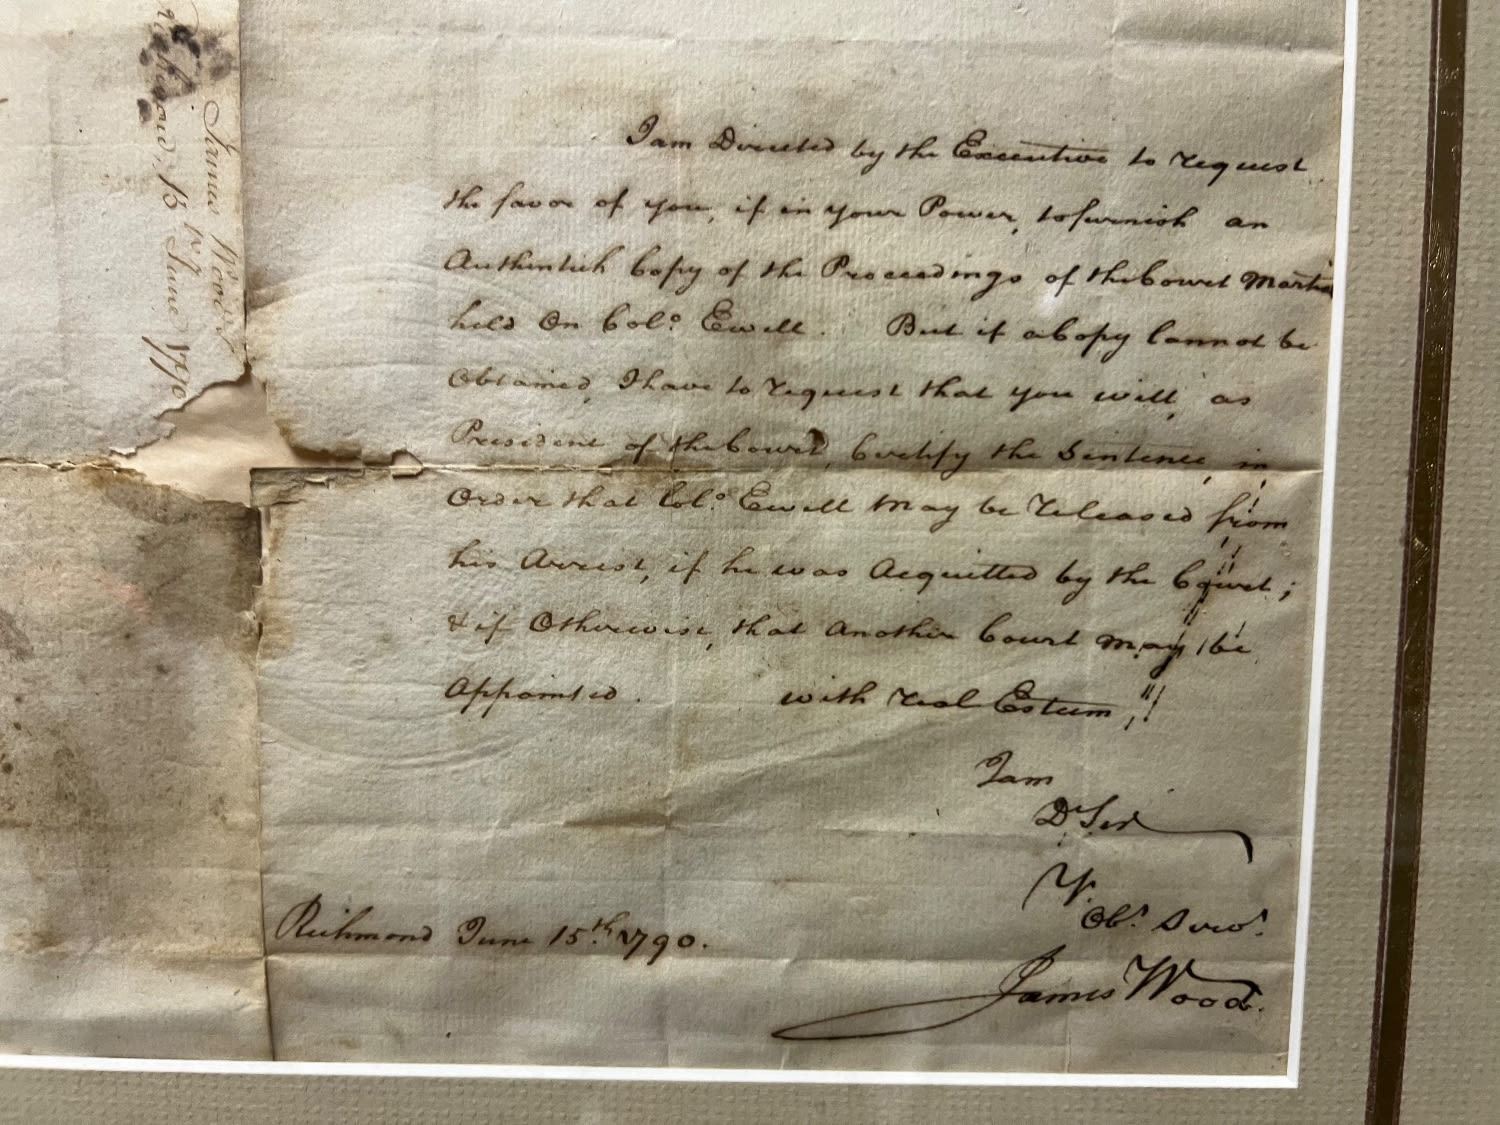 James Wood
15th June 1790
I am Directed by the Executive to request
the favor of you, if in your Power, to furnish an
Authentick Copy of the Proceedings of the Court Martial
held on Colo. Ewell. But if a Copy Cannot be
Obtained, I have to request that you will, as
President of the Court, Certify the Sentence, in
Order that Colo. Ewell May be released from
his Arrest, if he was Acquitted by the Court;
& if Otherwise, that Another Court May be
Appointed. with real Esteem,
I am
Dr Sir
Yr.
Obt. Servt.
Richmond June 15th. 1790.
James Wood.